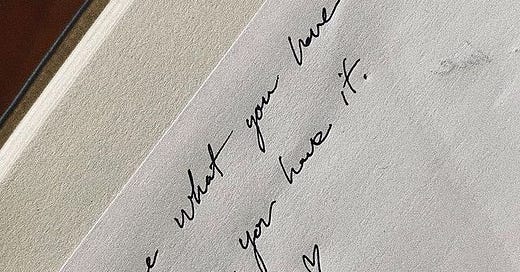 what you have
you have it.